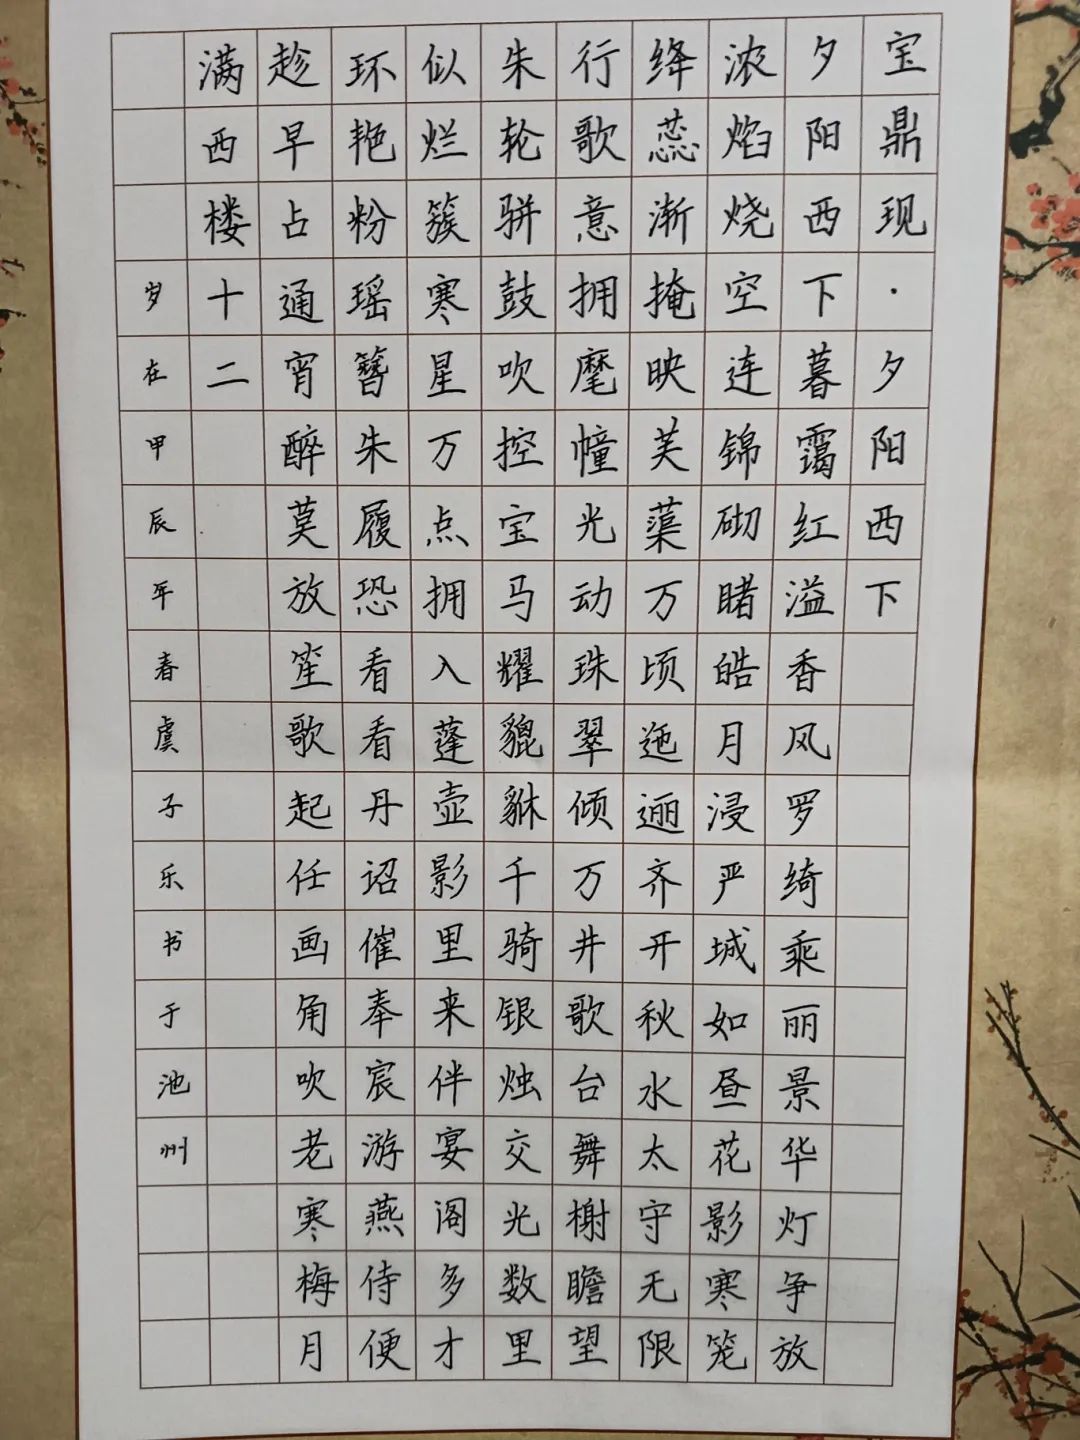 宝鼎现·夕阳西下
夕阳西下暮霭红溢香风罗绮乘丽景华灯争放
浓焰烧空连锦砌睹皓月浸严城如昼花影寒笼
绛蕊渐掩映芙蕖万顷迤逦齐开秋水太守无限
行歌意拥麾幢光动珠翠倾万井歌台舞榭瞻望
朱轮骈鼓吹控宝马耀貔貅千骑银烛交光数里
似烂簇寒星万点拥入蓬壶影里来伴宴阁多才
环艳粉瑶簪朱履恐看看丹诏催奉宸游燕侍便
趁早占通宵醉莫放笙歌起任画角吹老寒梅月
满西楼十二
岁在甲辰年春虞子乐书于池州